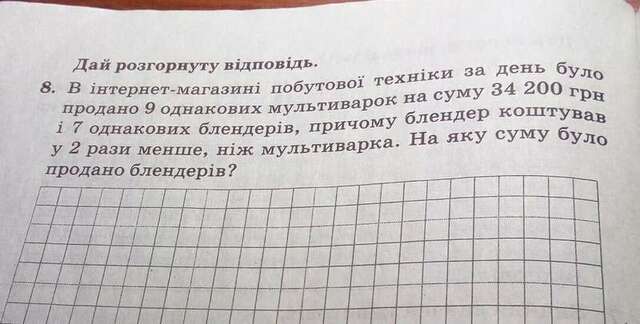 Дай розгорнуту відповідь.
8. В інтернет-магазині побутової техніки за день було
продано 9 однакових мультиварок на суму 34 200 грн
і 7 однакових блендерів, причому блендер коштував
у 2 рази менше, ніж мультиварка. На яку суму було
продано блендерів?